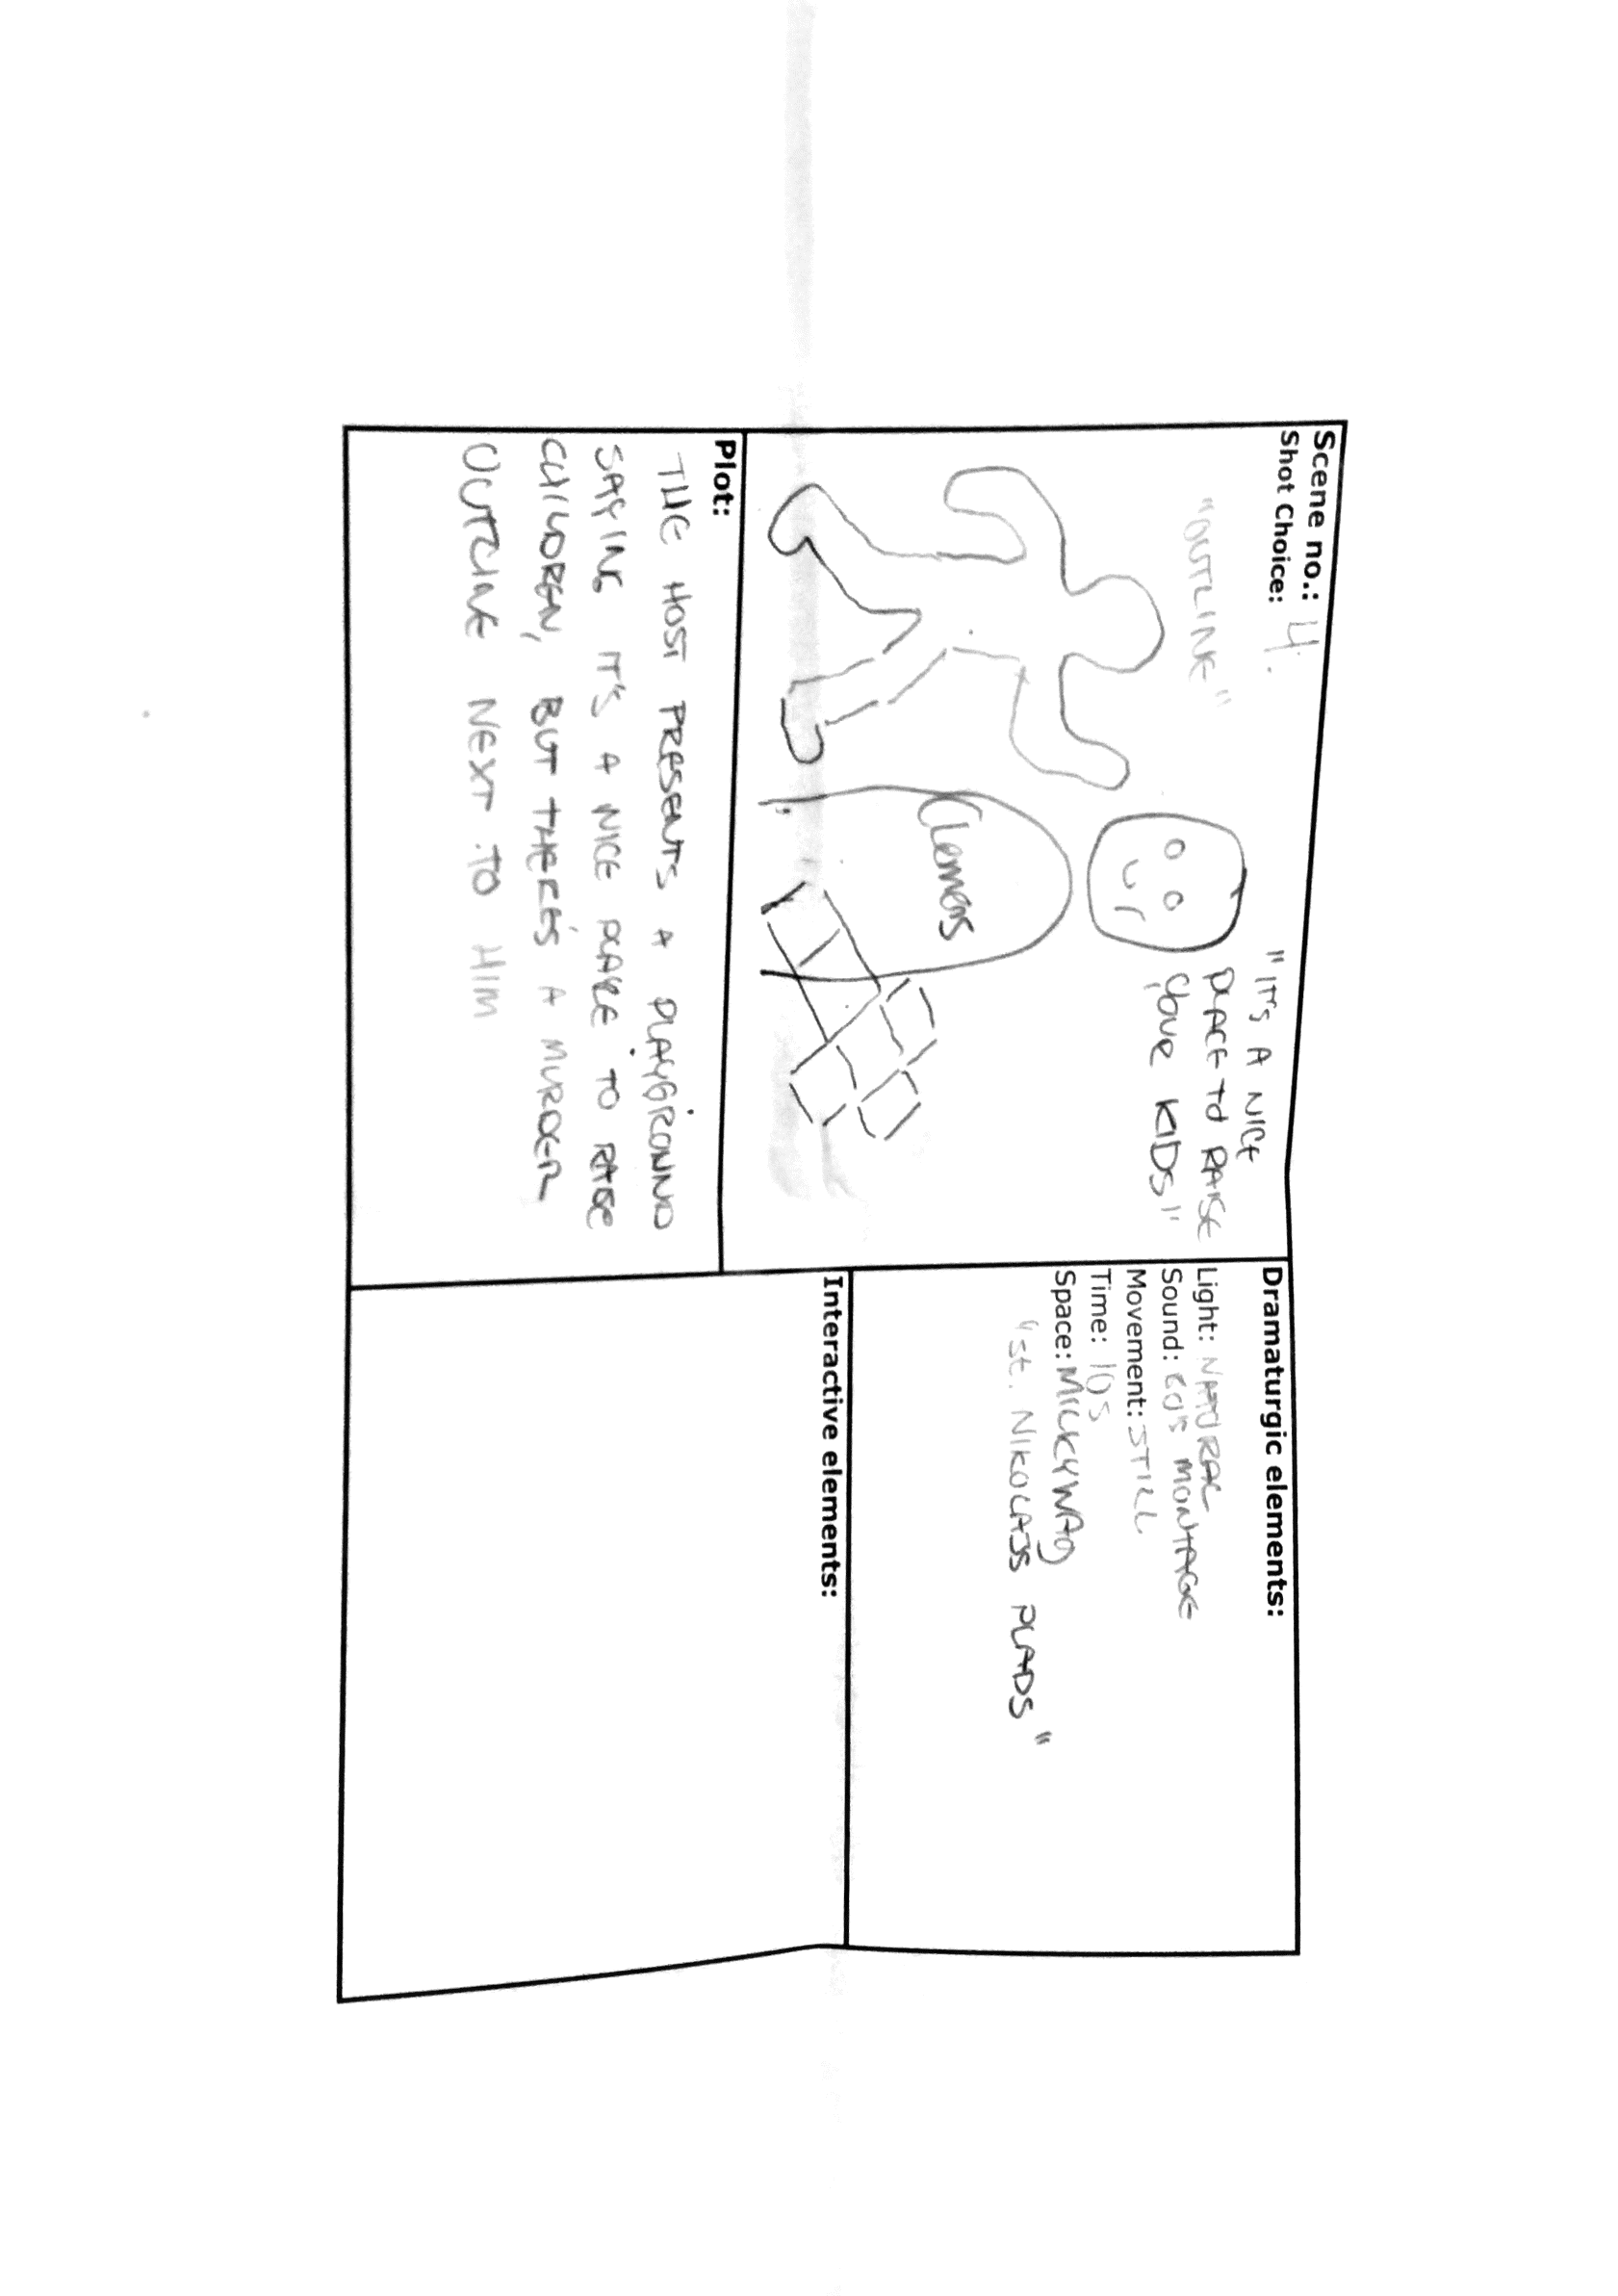 Scene no.: 4.
Shot Choice:
"OUTLINE"
"IT'S A NICE
PLACE TO RAISE
YOUR KIDS"
Clemens
Plot:
THE HOST PRESENTS A PLAYGROUND
SAYING IT'S A NICE PLACE TO RAISE
CHILDREN, BUT THERE'S A MURDER
OUTLINE NEXT TO HIM
Dramaturgic elements:
Light: NATURAL
Sound: MONTAGE
Movement: STILL
Time: 10s
Space: MILKYWAY
"ST. NIKOLAJS PLADS"
Interactive elements: